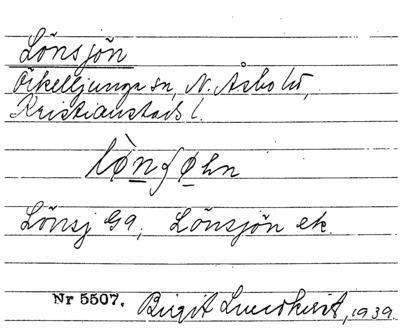 Lönsjön
Örkelljunga sn, N. Åsbo hd,
Kristianstads l.
lø̀nʃøhn
Lönsj G9; Lönsjön ek.
Nr 5507. Birgit Lundkvist, 1939.